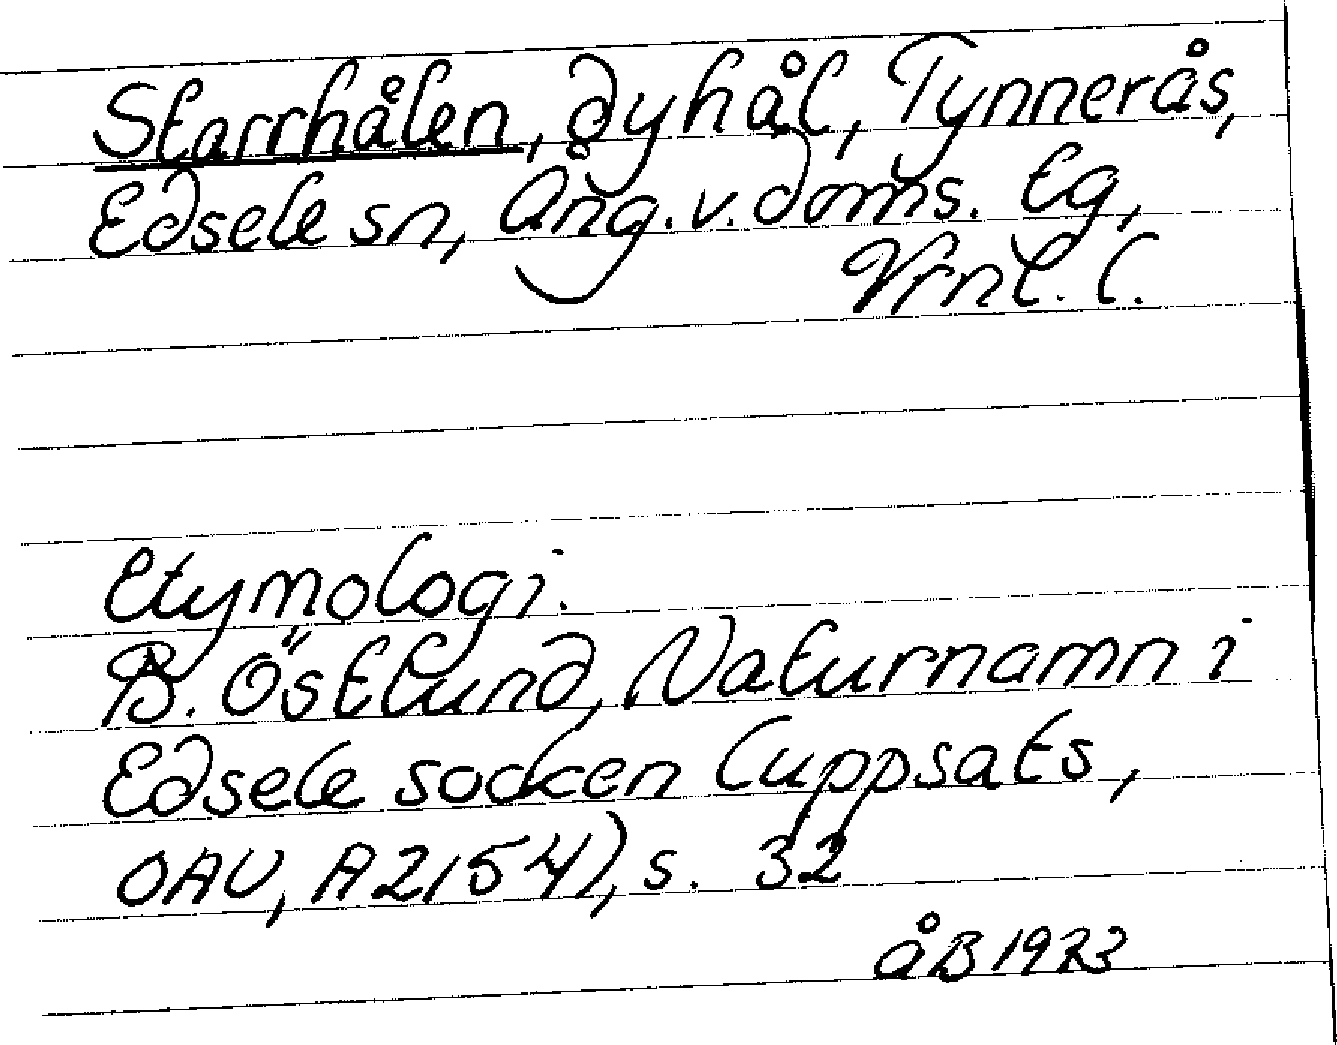 Starrhålen, dyhål, Tynnerås,
Edsele sn, Ång. v. doms. lg,
Vrnl. l.
Etymologi.
B. Östlund, Naturnamn i
Edsele socken (uppsats,
OAU, A 2154), s. 32
åB 1973